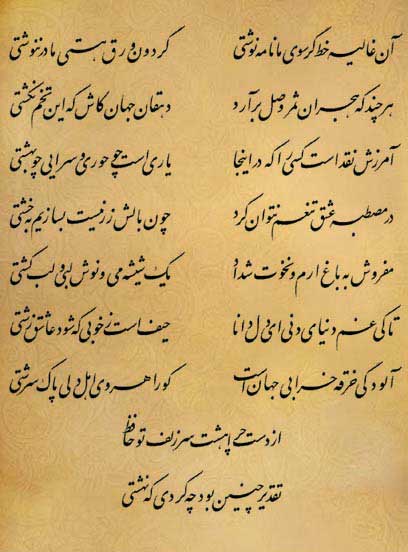 آن غالیه خط گر سوی ما نامه نوشتی گردون ورق هستی ما درننوشتی
هر چند که هجران ثمر وصل برآرد دهقان جهان کاش که این تخم نکشتی
آمرزش نقد است کسی را که در اینجا یاری است چو حوری و سرایی چو بهشتی
در مصطبه عشق تنعم نتوان کرد چون بالش زر نیست بسازیم به خشتی
مفروش به باغ ارم و نخوت شداد یک شیشه می و نوش لبی و لب کشتی
تا کی غم دنیای دنی ای دل دانا حیف است ز خوبی که شود عاشق زشتی
آلودگی خرقه خرابی جهان است کو راهروی اهل دلی پاک سرشتی
از دست چرا هشت سر زلف تو حافظ
تقدیر چنین بود چه کردی که نهشتی